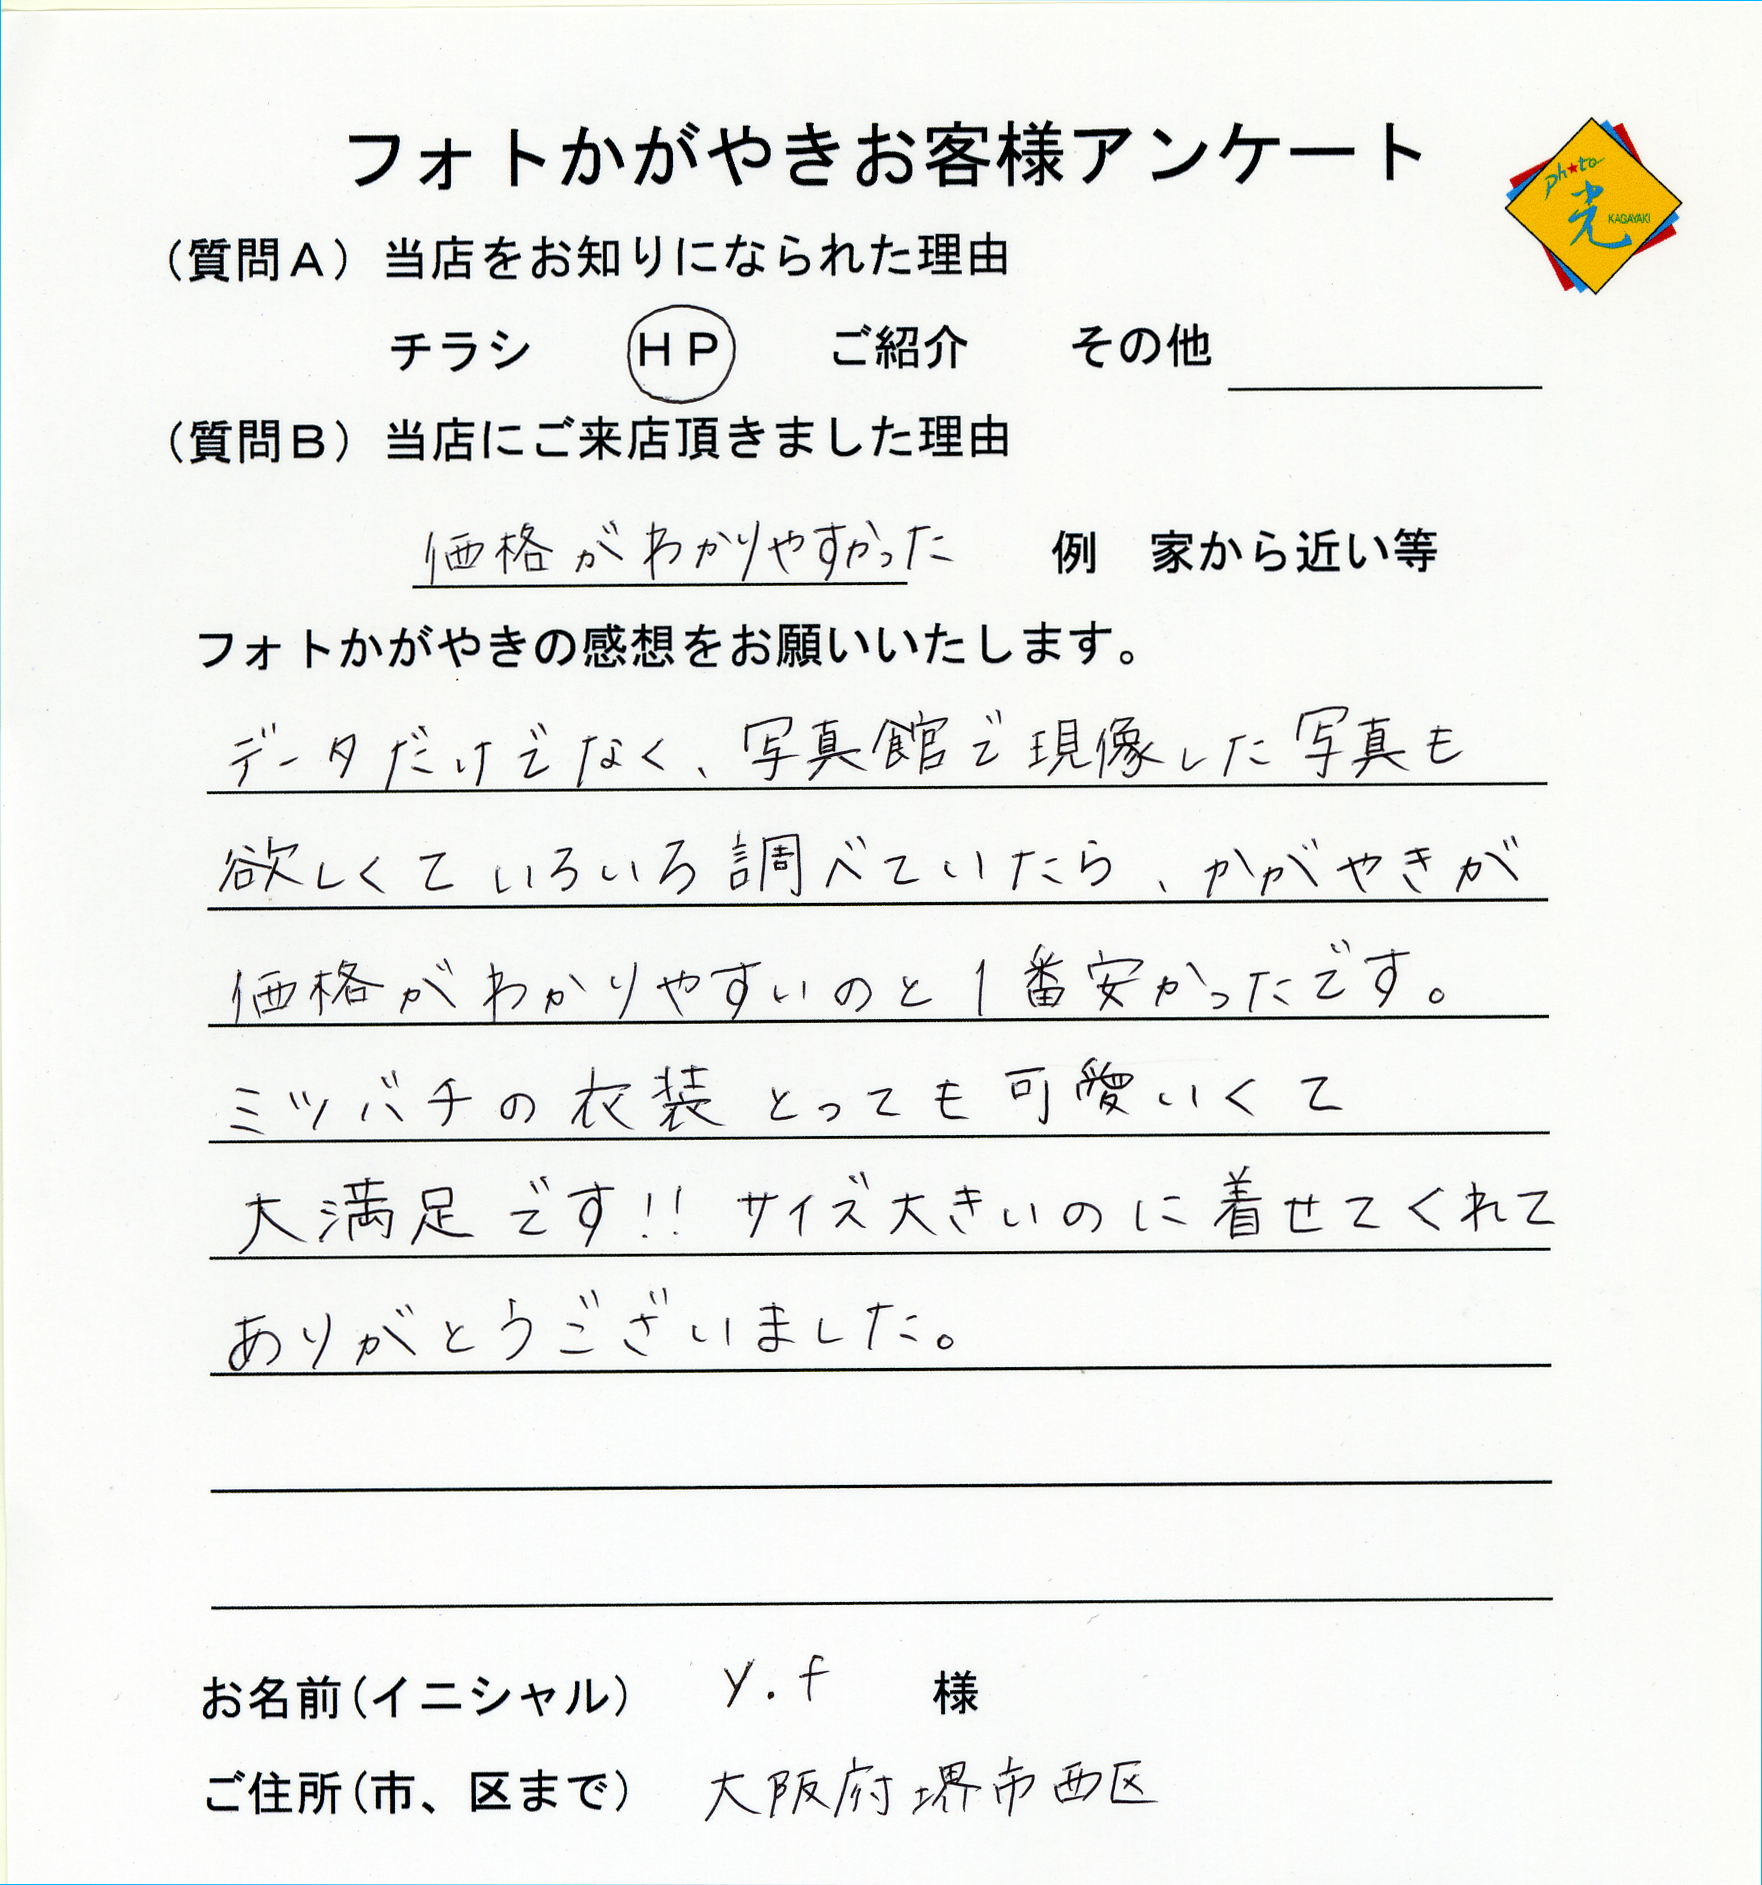 フォトかがやきお客様アンケート
photo
光
KAGAYAKI
（質問A）当店をお知りになられた理由
チラシ　HP　ご紹介　その他
（質問B）当店にご来店頂きました理由
価格がわかりやすかった　例　家から近い等
フォトかがやきの感想をお願いいたします。
データだけでなく、写真館で現像した写真も
欲しくていろいろ調べていたら、かがやきが
価格がわかりやすいのと1番安かったです。
ミツバチの衣装とっても可愛いくて
大満足です!!サイズ大きいのに着せてくれて
ありがとうございました。
お名前(イニシャル)　y.f　様
ご住所(市、区まで)　大阪府堺市西区